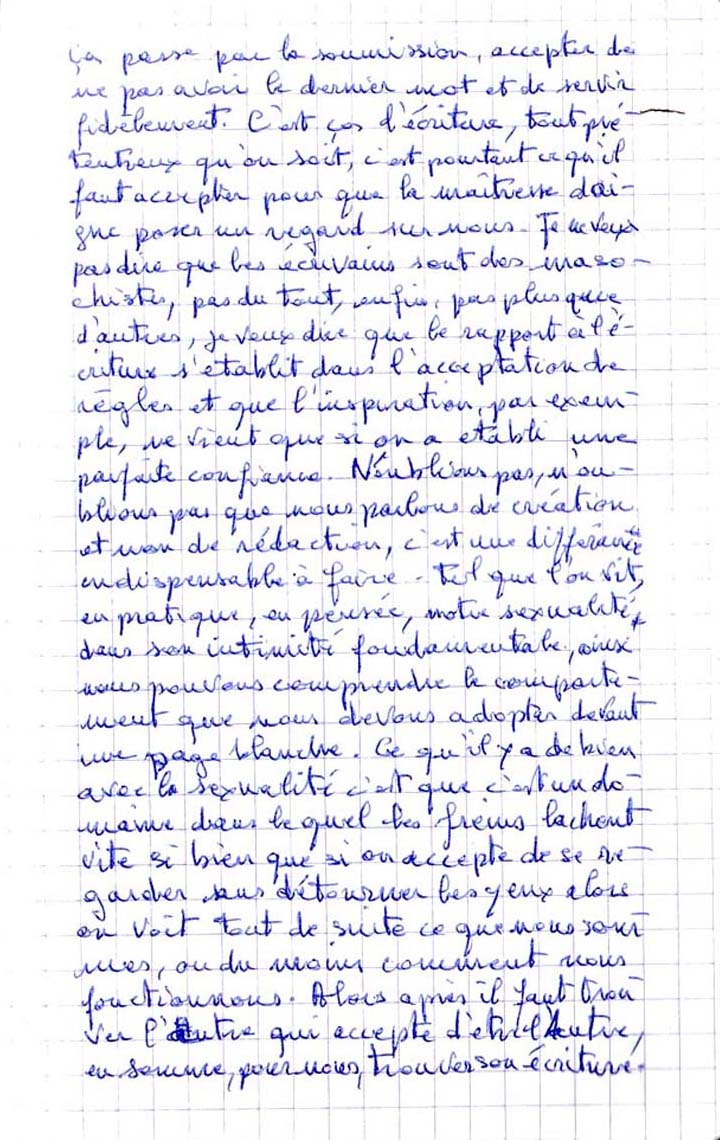 ça passe par la soumission, accepter de
ne pas avoir le dernier mot et de servir
fidèlement. C'est ça l'écriture, tout pré-
tentieux qu'on soit, c'est pourtant ce qu'il
faut accepter pour que la maîtresse dai-
gne poser un regard sur nous. Je ne veux
pas dire que les écrivains sont des maso-
chistes, pas du tout, enfin, pas plus que
d'autres, je veux dire que le rapport à l'é-
criture s'établit dans l'acceptation de
règles et que l'inspiration, par exem-
ple, ne vient que si on a établi une
parfaite confiance. N'oublions pas, n'ou-
blions pas que nous parlons de création
et non de rédaction, c'est une différence
indispensable à faire. Tel que l'on vit,
en pratique, en pensée, notre sexualité,
dans son intimité fondamentale, ainsi
nous pouvons comprendre le comporte-
ment que nous devons adopter devant
une page blanche. Ce qu'il y a de bien
avec la sexualité c'est que c'est un do-
maine dans lequel les freins lachent
vite si bien que si on accepte de se re-
garder sans détourner les yeux alors
on voit tout de suite ce que nous som-
mes, ou du moins comment nous
fonctionnons. Alors après il faut trou
ver l'Autre qui accepte d'être l'Autre,
en somme, pour nous, trouver son écriture.